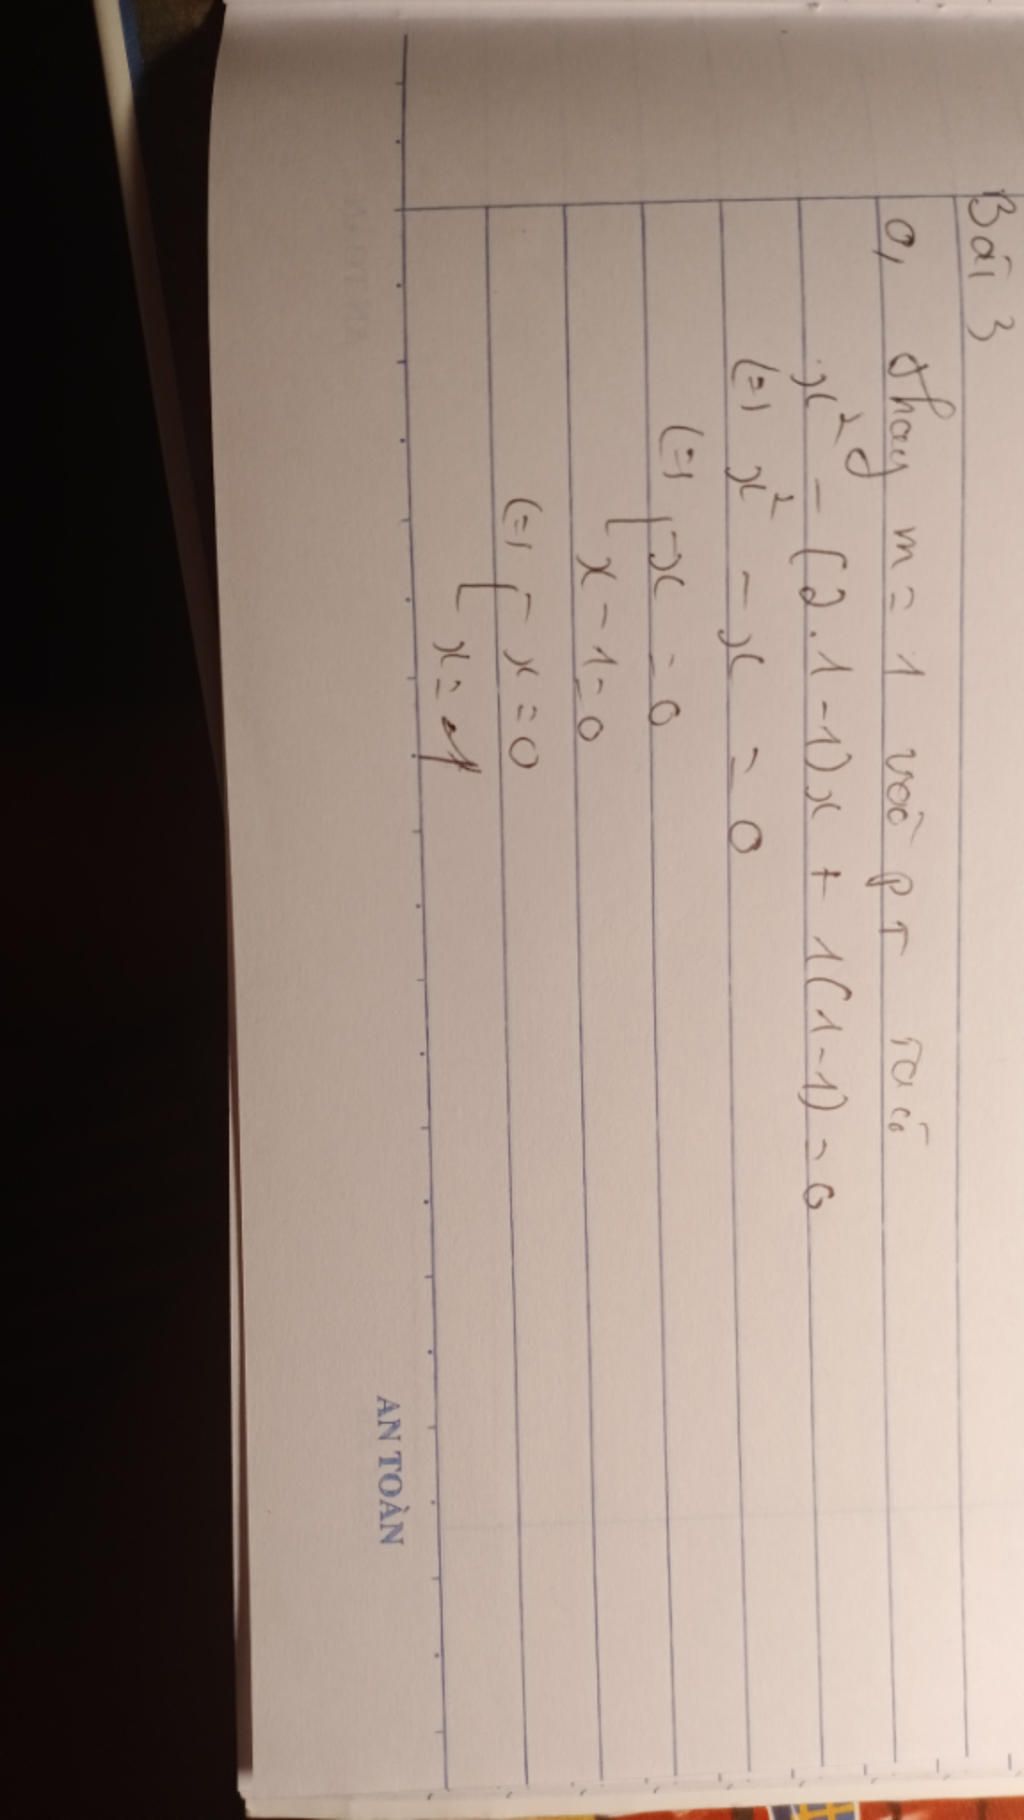 Bài 3
a, thay m = 1 vào pt ta có
x² - (2.1-1)x + 1(1-1) = 0
(=) x² - x = 0
(=) [ x = 0
[ x - 1 = 0
(=) [ x = 0
[ x = 1
AN TOÀN